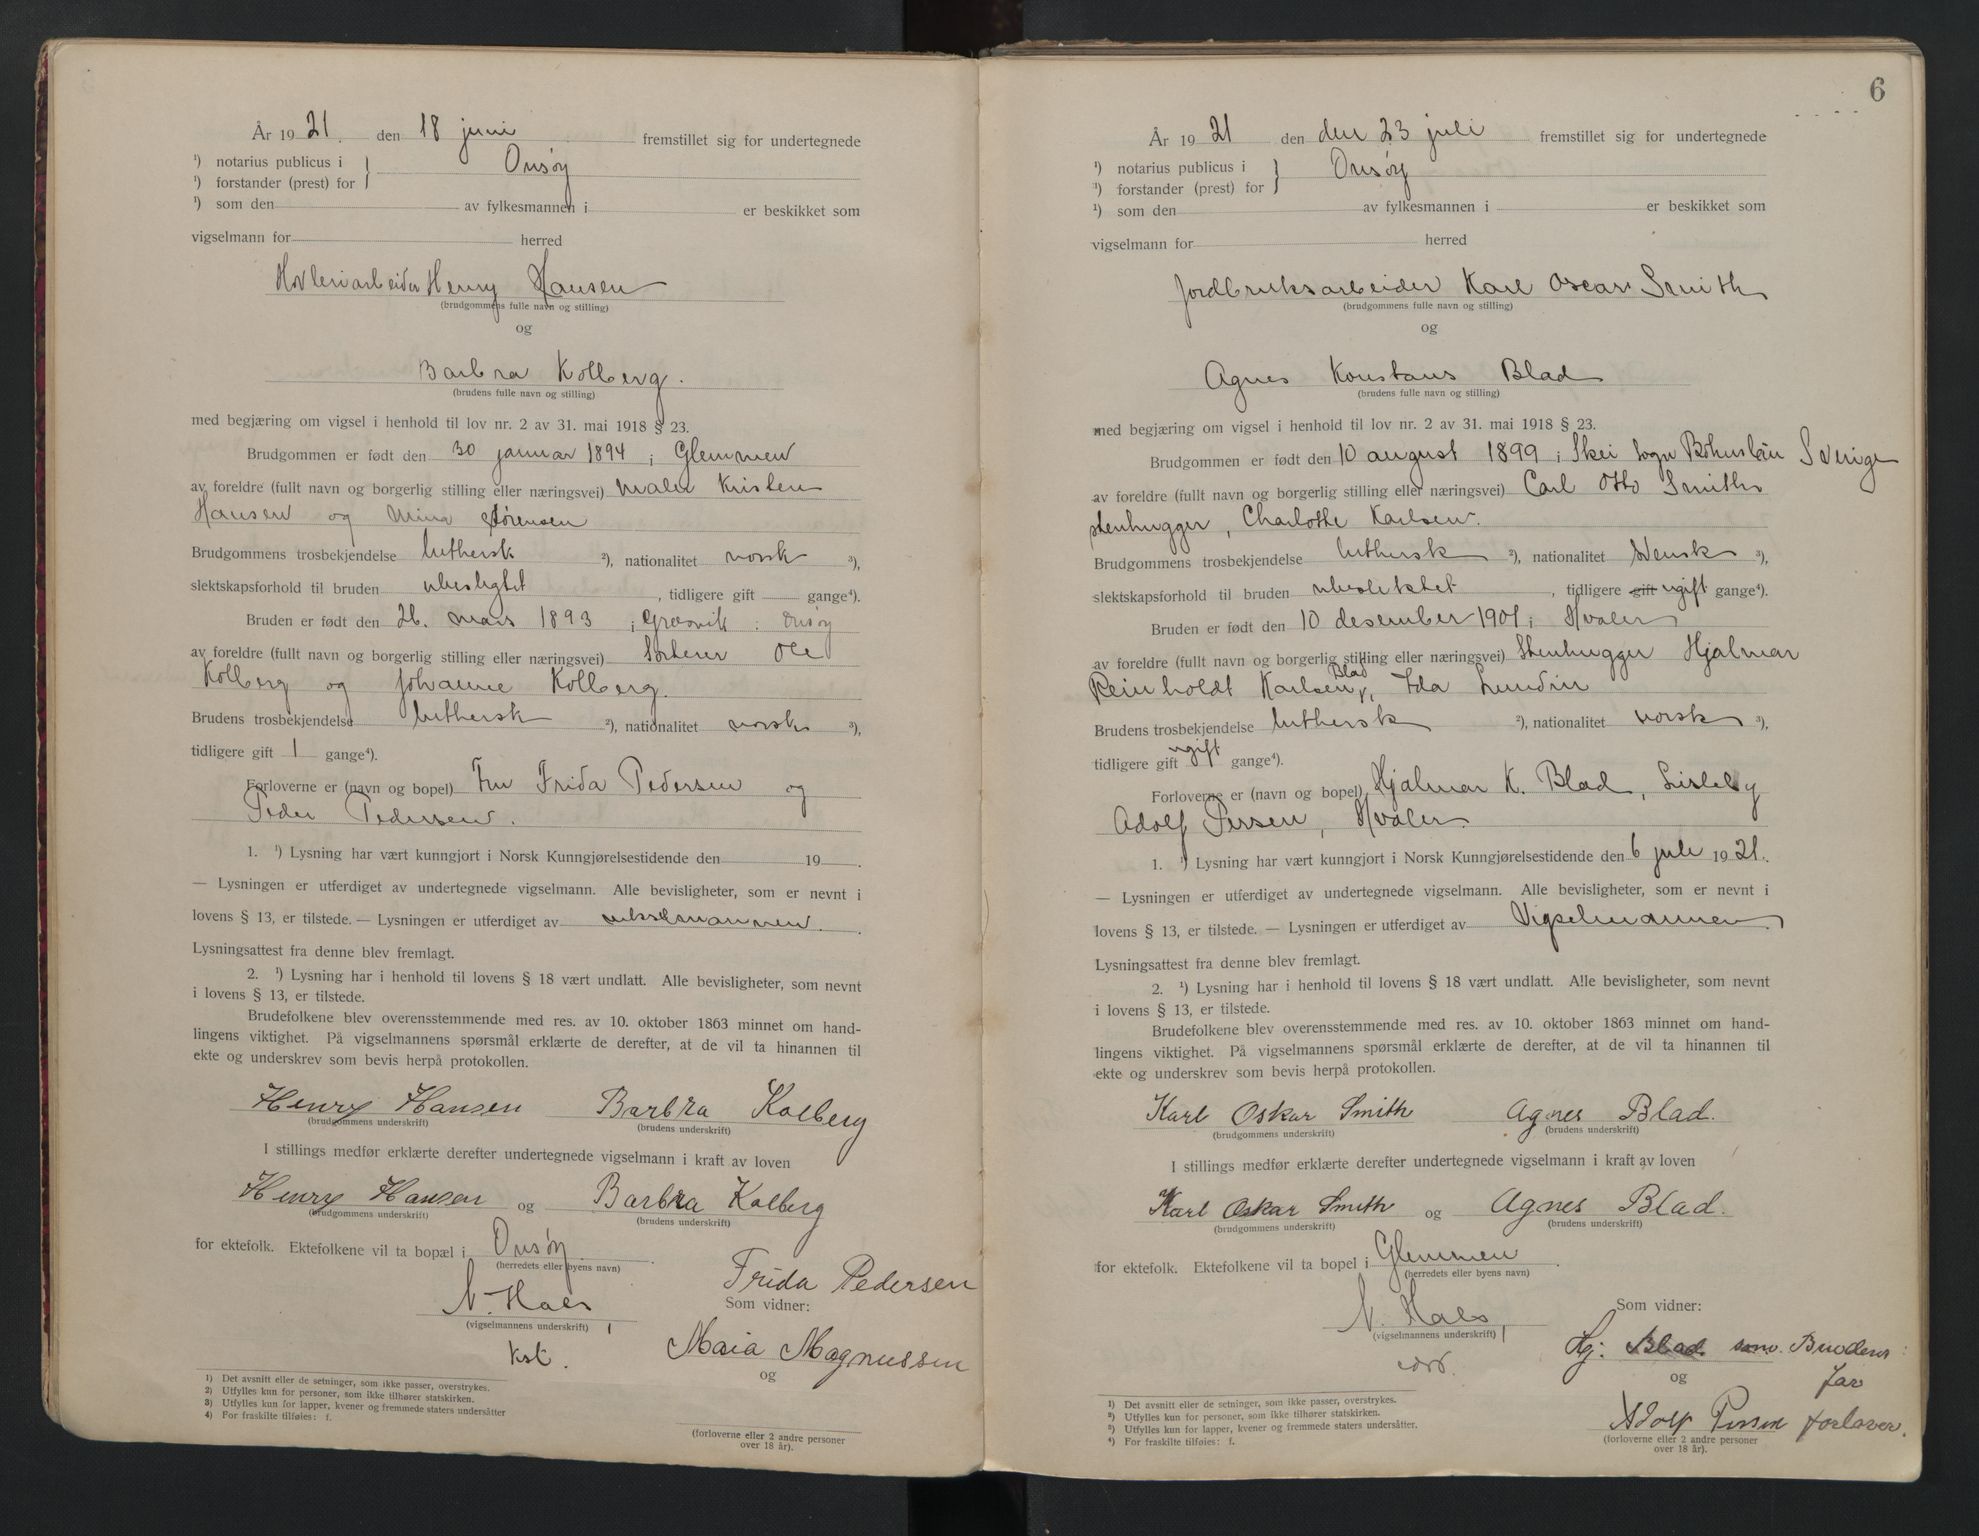 År 19 21. den 18 juni fremstillet sig for undertegnede
¹) notarius publicus i
¹) forstander (prest) for } Onsøy
¹) som den av fylkesmannen i er beskikket som
vigselmann for herred
Høvleriarbeider Henry Hansen
(brudgommens fulle navn og stilling)
og
Barbra Kolberg.
(brudens fulle navn og stilling)
med begjæring om vigsel i henhold til lov nr. 2 av 31. mai 1918 § 23.
Brudgommen er født den 30 januar 1894 i Glemmen
av foreldre (fullt navn og borgerlig stilling eller næringsvei) maler Kristen
Hansen og Mina Sørensen
Brudgommens trosbekjendelse luthersk ²), nationalitet norsk ³),
slektskapsforhold til bruden ubeslegtet, tidligere gift gange⁴).
Bruden er født den 26. mars 1893 i Græsvik i Onsøy
av foreldre (fullt navn og borgerlig stilling eller næringsvei) Sorterer Ole
Kolberg og Johanne Kolberg.
Brudens trosbekjendelse luthersk ²), nationalitet norsk ³),
tidligere gift 1 gange⁴).
Forloverne er (navn og bopel) Fru Frida Pedersen og
Peder Pedersen.
1. ¹) Lysning har vært kunngjort i Norsk Kunngjørelsestidende den 19 .
— Lysningen er utferdiget av undertegnede vigselmann. Alle bevisligheter, som er nevnt i
lovens § 13, er tilstede. — Lysningen er utferdiget av
Lysningsattest fra denne blev fremlagt.
2. ¹) Lysning har i henhold til lovens § 18 vært undlatt. Alle bevisligheter, som nevnt
i lovens § 13, er tilstede.
Brudefolkene blev overensstemmende med res. av 10. oktober 1863 minnet om hand-
lingens viktighet. På vigselmannens spørsmål erklærte de derefter, at de vil ta hinannen til
ekte og underskrev som bevis herpå protokollen.
Henry Hansen Barbra Kolberg
(brudgommens underskrift) (brudens underskrift)
I stillings medfør erklærte derefter undertegnede vigselmann i kraft av loven
Henry Hansen og Barbra Kolberg
(brudgommens underskrift) (brudens underskrift)
for ektefolk. Ektefolkene vil ta bopæl i Onsøy.
(herredets eller byens navn)
Frida Pedersen
N. Hals, Som vidner:
(vigselmannens underskrift)
kst. Maia Magnussen
og
¹) Det avsnitt eller de setninger, som ikke passer, overstrykes.
²) Utfylles kun for personer, som ikke tilhører statskirken.
³) Utfylles kun for lapper, kvener og fremmede staters undersåtter
⁴) For fraskilte tilføies: f.
(forloverne eller 2 andre personer
over 18 år).
6
År 19 21 den den 23 juli fremstillet sig for undertegnede
¹) notarius publicus i
¹) forstander (prest) for } Onsøy
¹) som den av fylkesmannen i er beskikket som
vigselmann for herred
Jordbruksarbeider Karl Oscar Smith
(brudgommens fulle navn og stilling)
og
Agnes Konstans Blad
(brudens fulle navn og stilling)
med begjæring om vigsel i henhold til lov nr. 2 av 31. mai 1918 § 23.
Brudgommen er født den 10 august 1899 i Skei sogn Bohuslän Sverige
av foreldre (fullt navn og borgerlig stilling eller næringsvei) Carl Otto Smith
stenhugger, Charlotte Karlsen.
Brudgommens trosbekjendelse luthersk ²), nationalitet svensk ³),
slektskapsforhold til bruden ubeslektet, tidligere gift ugift gange⁴).
Bruden er født den 10 desember 1901 i Hvaler
av foreldre (fullt navn og borgerlig stilling eller næringsvei) Stenhugger Hjalmar
Reinholdt Karlsen Blad, Ida Lundin
Brudens trosbekjendelse luthersk ²), nationalitet norsk ³),
tidligere gift ugift gange⁴).
Forloverne er (navn og bopel) Hjalmar K. Blad, Lisleby
Adolf Persen, Hvaler
1. ¹) Lysning har vært kunngjort i Norsk Kunngjørelsestidende den 6 juli 1921.
— Lysningen er utferdiget av undertegnede vigselmann. Alle bevisligheter, som er nevnt i
lovens § 13, er tilstede. — Lysningen er utferdiget av Vigselmannen.
Lysningsattest fra denne blev fremlagt.
2. ¹) Lysning har i henhold til lovens § 18 vært undlatt. Alle bevisligheter, som nevnt
i lovens § 13, er tilstede.
Brudefolkene blev overensstemmende med res. av 10. oktober 1863 minnet om hand-
lingens viktighet. På vigselmannens spørsmål erklærte de derefter, at de vil ta hinannen til
ekte og underskrev som bevis herpå protokollen.
Karl Oskar Smith Agnes Blad.
(brudgommens underskrift) (brudens underskrift)
I stillings medfør erklærte derefter undertegnede vigselmann i kraft av loven
Karl Oskar Smith og Agnes Blad.
(brudgommens underskrift) (brudens underskrift)
for ektefolk. Ektefolkene vil ta bopel i Glemmen.
(herredets eller byens navn)
N. Hals, Som vidner:
(vigselmannens underskrift)
Hj: Blad. som Brudens
og far
¹) Det avsnitt eller de setninger, som ikke passer, overstrykes.
²) Utfylles kun for personer, som ikke tilhører statskirken.
³) Utfylles kun for lapper, kvener og fremmede staters undersåtter.
⁴) For fraskilte tilføies: f.
Adolf Persen forlover.
(forloverne eller 2 andre personer
over 18 år).